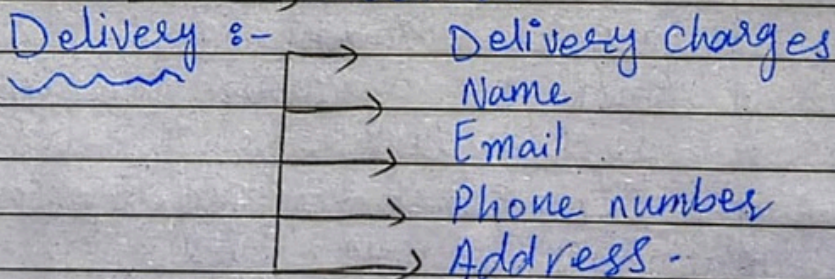 Delivery :- Delivery charges
Name
Email
Phone number
Address.